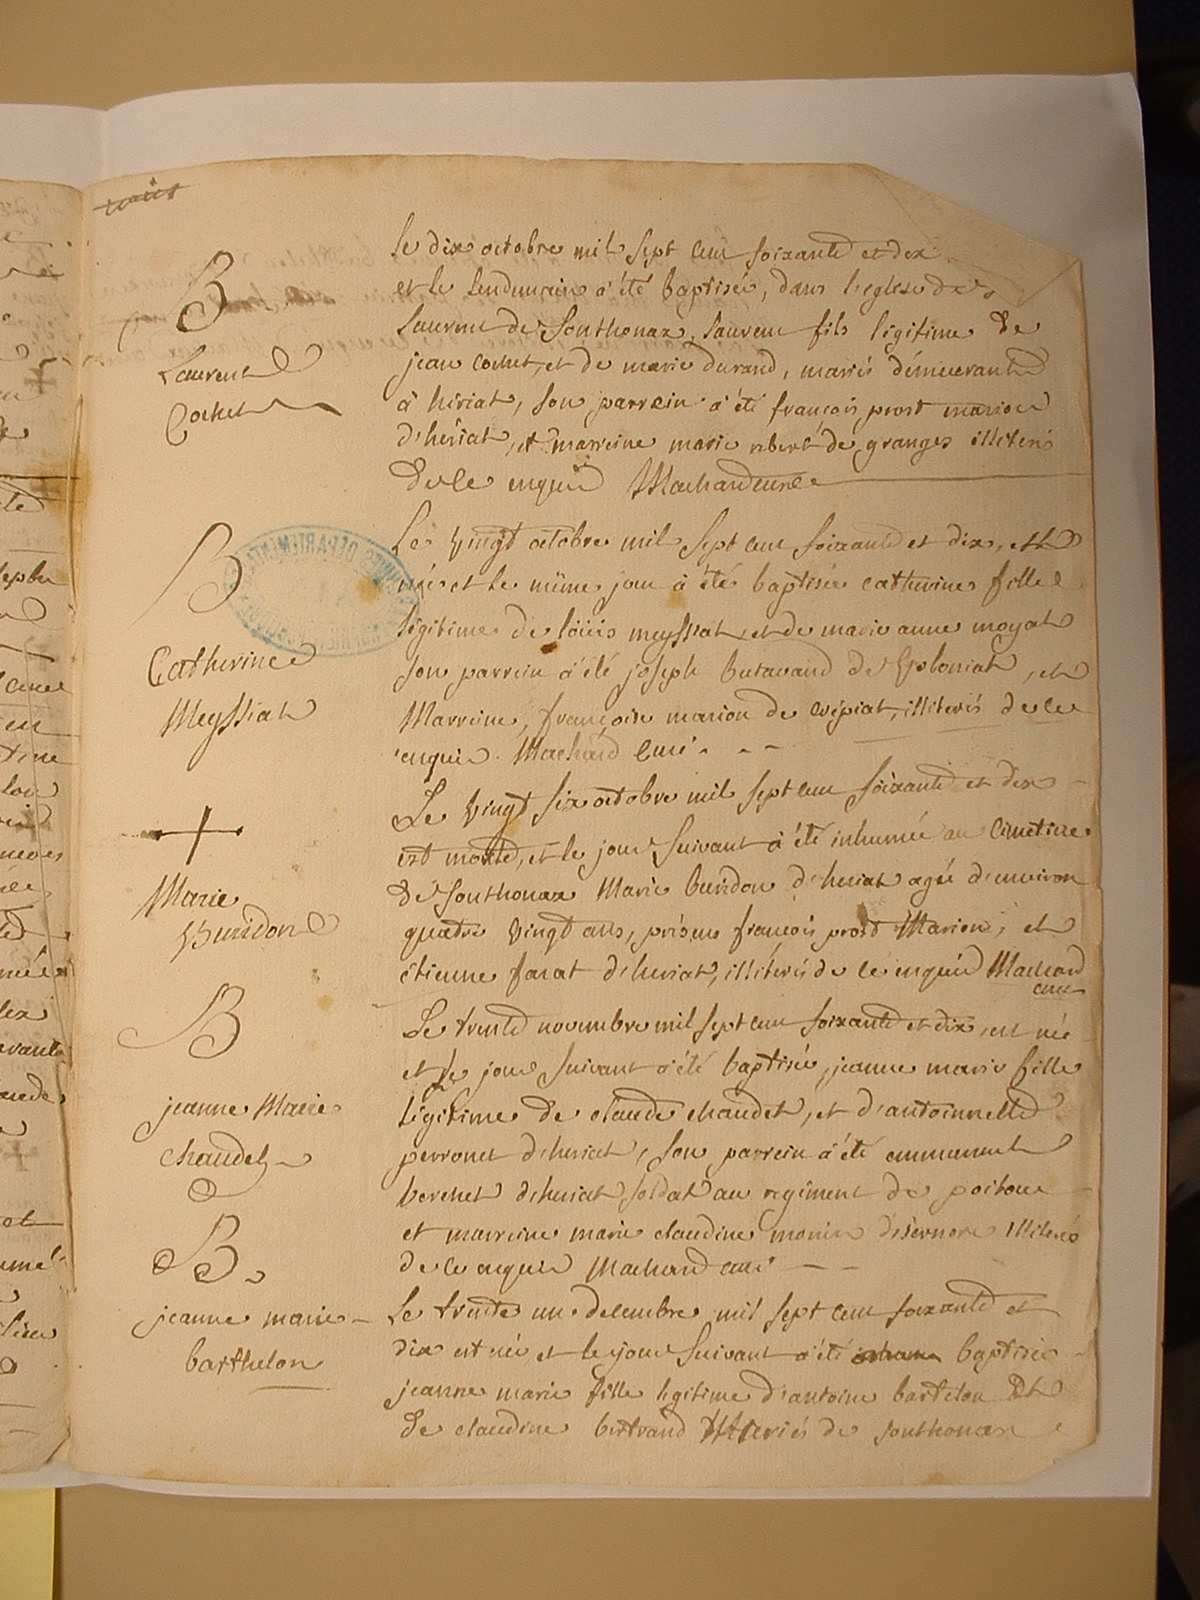 B
Laurent
Cochet
le dix octobre mil sept cent soixante et dix
et le lendemain a été baptisée, dans l'eglise de
Laurent de Sonthonax, laurent fils légitime de
jean cochet, et de marie durand, mariés démeurants
à hériat, son parrein a été françois prost marion
d'hériat, et marreine marie robert de granges illiterés
de ce enquis Machard curé
B
Catherine
Meyssiat
Le vingt octobre mil sept cent soixante et dix, est
née et le même jour a été baptisée catherine fille
légitime de loüis meyssiat, et de marie anne moyat
son parrein a été joseph butavand de Voloniat, et
Marreine, françoise marion de crépiat, illiterés de ce
enquis. Machard curé
+
Marie
Buridon
Le vingt six octobre mil sept cent soixante et dix
est morte, et le jour suivant a été inhumée au cimetiere
de Sonthonax Marie buridon d'heriat agée d'environ
quatre vingt ans, présens françois prost Marion, et
étienne farat d'heriat, illiterés de ce enquis Machard
curé
B
jeanne Marie
chaudet
Le trente novembre mil sept cent soixante et dix, est née
et le jour suivant a été baptisée, jeanne marie fille
légitime de claude chaudet, et d'antoinnette
perronet d'heriat, son parrein a été emmanuel
berchet d'heriat, soldat au regiment de poitou
et marreine marie claudine monin d'isernore illiterés
de ce enquis Machard curé
B
jeanne marie
barthelon
Le trente un decembre mil sept cent soixante et
dix est née et le jour suivant a été baptisée
jeanne marie fille legitime d'antoine bartelon et
de claudine bertrand Mariés de sonthonax